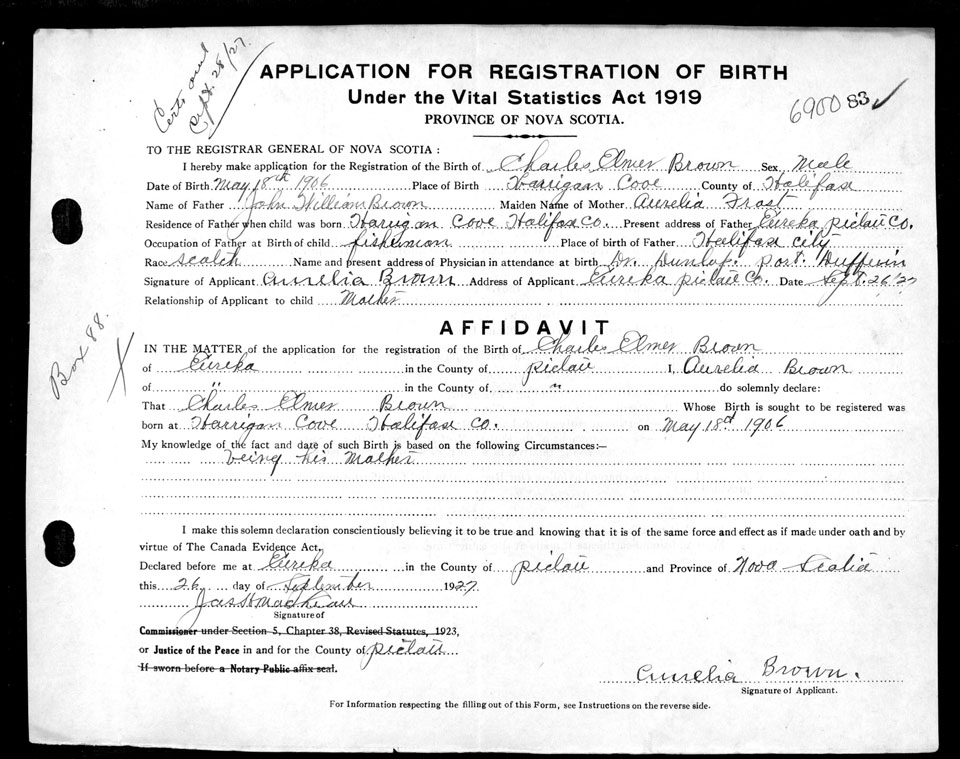 Certs and
Sept. 28/27.
APPLICATION FOR REGISTRATION OF BIRTH
Under the Vital Statistics Act 1919
PROVINCE OF NOVA SCOTIA.
690083 ✓
TO THE REGISTRAR GENERAL OF NOVA SCOTIA :
I hereby make application for the Registration of the Birth of Charles Elmer Brown Sex Male
Date of Birth May 18th 1906 Place of Birth Harrigan Cove County of Halifax
Name of Father John William Brown Maiden Name of Mother Aurelia Frost
Residence of Father when child was born Harrigan Cove Halifax Co. Present address of Father Eureka Pictou Co.
Occupation of Father at Birth of child fisherman Place of birth of Father Halifax City
Race Scotch Name and present address of Physician in attendance at birth Dr. Dunlop. port. Dufferin
Signature of Applicant Aurelia Brown Address of Applicant Eureka Pictou Co. Date Sept. 26/27
Relationship of Applicant to child Mother
Box 88.
AFFIDAVIT
IN THE MATTER of the application for the registration of the Birth of Charles Elmer Brown
of Eureka in the County of Pictou I, Aurelia Brown
of " in the County of " do solemnly declare:
That Charles Elmer Brown Whose Birth is sought to be registered was
born at Harrigan Cove Halifax Co. on May 18d 1906
My knowledge of the fact and date of such Birth is based on the following Circumstances:—
being his Mother
I make this solemn declaration conscientiously believing it to be true and knowing that it is of the same force and effect as if made under oath and by
virtue of The Canada Evidence Act.
Declared before me at Eureka in the County of Pictou and Province of Nova Scotia
this 26 day of September 1927
Signature of
Commissioner under Section 5, Chapter 38, Revised Statutes, 1923,
or Justice of the Peace in and for the County of Pictou
If sworn before a Notary Public affix seal.
Aurelia Brown.
Signature of Applicant.
For Information respecting the filling out of this Form, see Instructions on the reverse side.